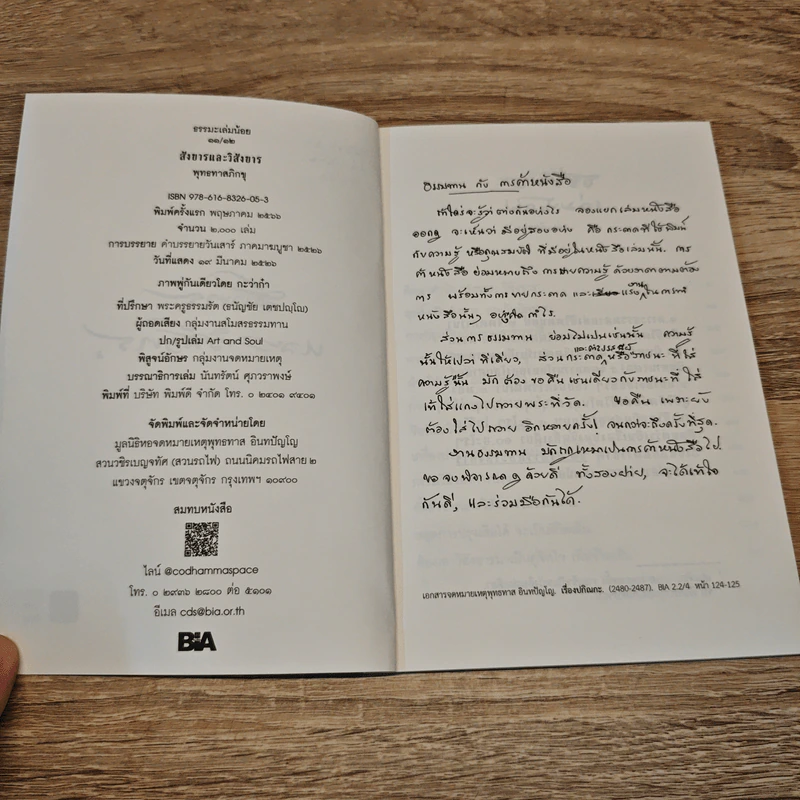 ธรรมะเล่มน้อย
๑๑/๑๒
สังขารและวิสังขาร
พุทธทาสภิกขุ
ISBN 978-616-8326-05-3
พิมพ์ครั้งแรก พฤษภาคม ๒๕๖๖
จำนวน ๒,๐๐๐ เล่ม
การบรรยาย คำบรรยายวันเสาร์ ภาคมาฆบูชา ๒๕๒๖
วันที่แสดง ๑๙ มีนาคม ๒๕๒๖
ภาพพู่กันเดียวโดย กะว่าก๋า
ที่ปรึกษา พระครูธรรมรัต (ธนัญชัย เตชปญฺโญ)
ผู้ถอดเสียง กลุ่มงานสโมสรธรรมทาน
ปก/รูปเล่ม Art and Soul
พิสูจน์อักษร กลุ่มงานจดหมายเหตุ
บรรณาธิการเล่ม นันทรัตน์ ศุภวราพงษ์
พิมพ์ที่ บริษัท พิมพ์ดี จำกัด โทร. ๐ ๒๔๐๑ ๙๔๐๑
จัดพิมพ์และจัดจำหน่ายโดย
มูลนิธิหอจดหมายเหตุพุทธทาส อินทปัญโญ
สวนวชิรเบญจทัศ (สวนรถไฟ) ถนนนิคมรถไฟสาย ๒
แขวงจตุจักร เขตจตุจักร กรุงเทพฯ ๑๐๙๐๐
สมทบหนังสือ
ไลน์ @codhammaspace
โทร. ๐ ๒๙๓๖ ๒๘๐๐ ต่อ ๕๑๐๑
อีเมล cds@bia.or.th
BIA
ธรรมทาน กับ การค้าหนังสือ
ถ้าใคร่จะรู้ว่าต่างกันอย่างไร ลองแยกเล่มหนังสือ
ออกดู จะเห็นว่า มีอยู่สองอย่าง คือ กระดาษที่ใช้พิมพ์
กับความรู้ หรือคุณสมบัติ ที่มีอยู่ในหนังสือเล่มนั้น. การ
ค้าหนังสือ ย่อมหมายถึง การขายความรู้ ด้วยราคาตามต้อง
การ พร้อมทั้งการขายกระดาษ และแรงงานในการทำ
หนังสือนั้นๆ อย่างคิดกำไร.
ส่วนการธรรมทาน ย่อมไม่เป็นเช่นนั้น ความรู้
นั้นให้เปล่า ทีเดียว, ส่วนกระดาษและค่าแรงหรือภาชนะ ที่ใส่
ความรู้นั้น มักต้องขอคืน เช่นเดียวกับภาชนะที่ใส่
เท้าใส่แกงไปถวายพระที่วัด. ขอคืน เพราะยัง
ต้องใส่ไปถวาย อีกหลายครั้ง จนกว่าจะถึงครั้งที่สุด.
งานธรรมทาน มักถูกเหมาเป็นการค้าหนังสือไป.
ขอจงพิจารณาดูด้วยดี ทั้งสองฝ่าย, จะได้เข้าใจ
กันดี, และร่วมมือกันได้.
เอกสารจดหมายเหตุพุทธทาส อินทปัญโญ. เรื่องปกิณกะ. (2480-2487). BIA 2.2/4. หน้า 124-125